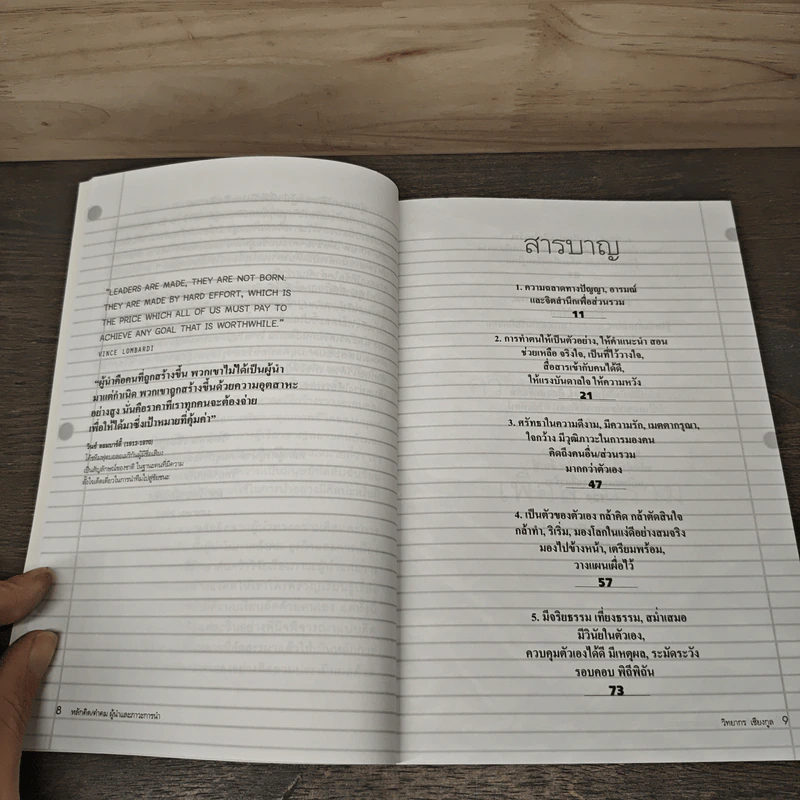 "LEADERS ARE MADE, THEY ARE NOT BORN.
THEY ARE MADE BY HARD EFFORT, WHICH IS
THE PRICE WHICH ALL OF US MUST PAY TO
ACHIEVE ANY GOAL THAT IS WORTHWHILE."
VINCE LOMBARDI
"ผู้นำคือคนที่ถูกสร้างขึ้น พวกเขาไม่ได้เป็นผู้นำ
มาแต่กำเนิด พวกเขาถูกสร้างขึ้นด้วยความอุตสาหะ
อย่างสูง นั่นคือราคาที่เราทุกคนจะต้องจ่าย
เพื่อให้ได้มาซึ่งเป้าหมายที่คุ้มค่า"
วินซ์ ลอมบาร์ดี้ (1913-1970)
โค้ชทีมฟุตบอลอเมริกันผู้มีชื่อเสียง
เป็นสัญลักษณ์ของชาติ ในฐานะคนที่มีความ
ตั้งใจเด็ดเดี่ยวในการนำทีมไปสู่ชัยชนะ
8 หลักคิด/คำคม ผู้นำและภาวะการนำ
สารบาญ
1. ความฉลาดทางปัญญา, อารมณ์
และจิตสำนึกเพื่อส่วนรวม
11
2. การทำตนให้เป็นตัวอย่าง, ให้คำแนะนำ สอน
ช่วยเหลือ จริงใจ, เป็นที่ไว้วางใจ,
สื่อสารเข้ากับคนได้ดี,
ให้แรงบันดาลใจ ให้ความหวัง
21
3. ศรัทธาในความดีงาม, มีความรัก, เมตตากรุณา,
ใจกว้าง มีวุฒิภาวะในการมองคน
คิดถึงคนอื่น/ส่วนรวม
มากกว่าตัวเอง
47
4. เป็นตัวของตัวเอง กล้าคิด กล้าตัดสินใจ
กล้าทำ, ริเริ่ม, มองโลกในแง่ดีอย่างสมจริง
มองไปข้างหน้า, เตรียมพร้อม,
วางแผนเผื่อไว้
57
5. มีจริยธรรม เที่ยงธรรม, สม่ำเสมอ
มีวินัยในตัวเอง,
ควบคุมตัวเองได้ดี มีเหตุผล, ระมัดระวัง
รอบคอบ พิถีพิถัน
73
วิทยากร เชียงกูล 9